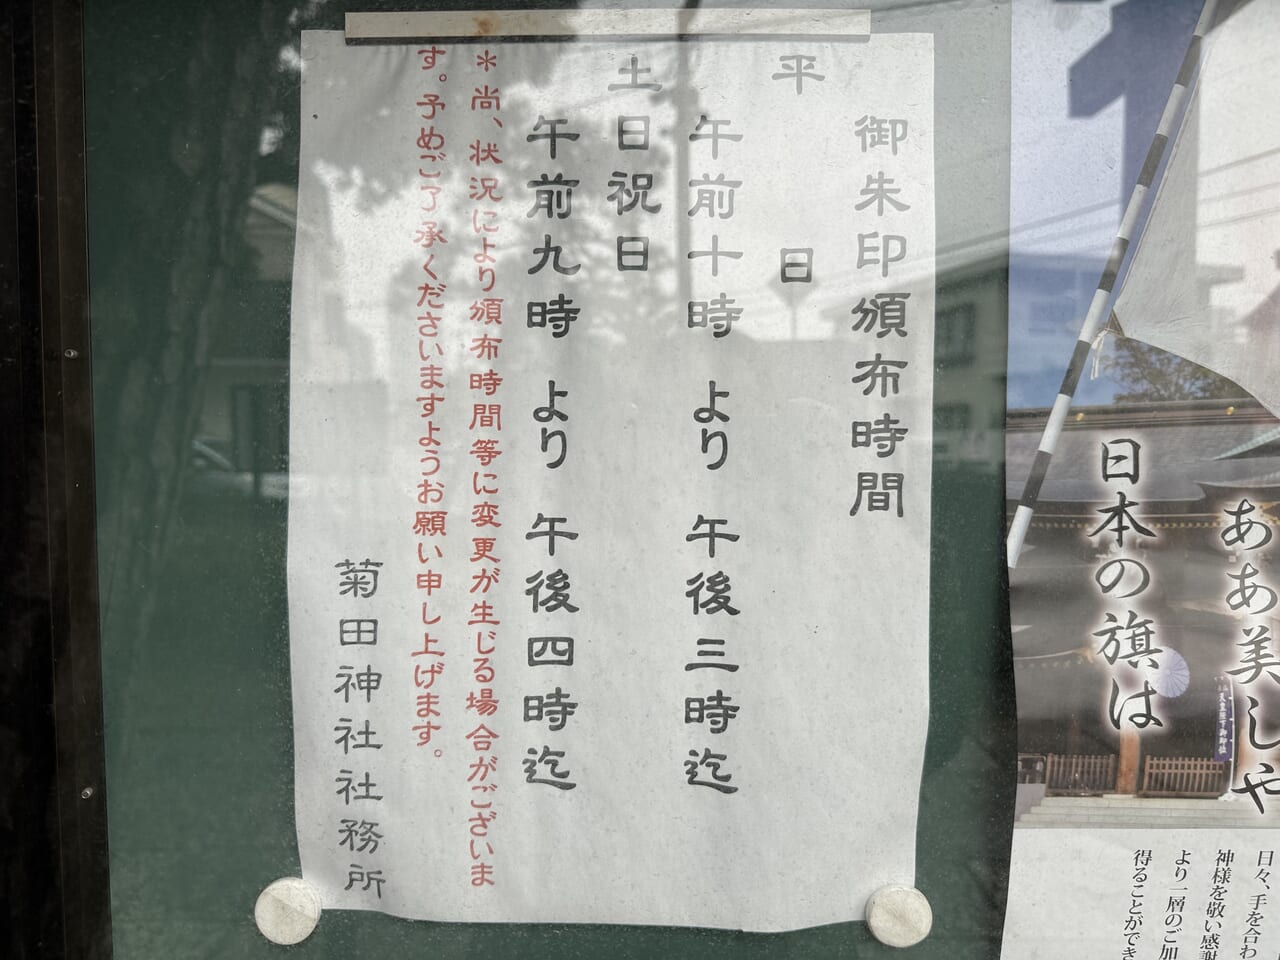 ああ美しや
日本の旗は
日々、手を合わ
神様を敬い感謝
より一層のご加
得ることができ
御朱印頒布時間
平日
午前十時 より 午後三時迄
土日祝日
午前九時 より 午後四時迄
＊尚、状況により頒布時間等に変更が生じる場合がございま
す。予めご了承くださいますようお願い申し上げます。
菊田神社社務所